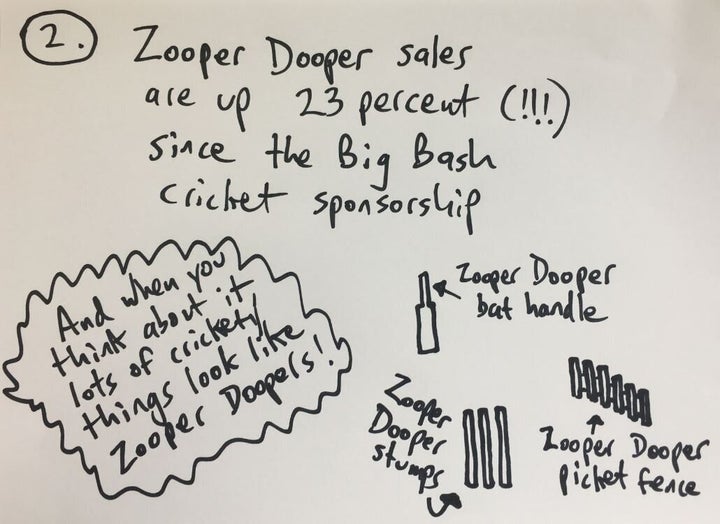 2. Zooper Dooper sales
are up 23 percent (!!!)
since the Big Bash
cricket sponsorship
And when you
think about it
lots of crickety
things look like
Zooper Doopers!
Zooper Dooper
bat handle
Zooper
Dooper
stumps
Zooper Dooper
picket fence